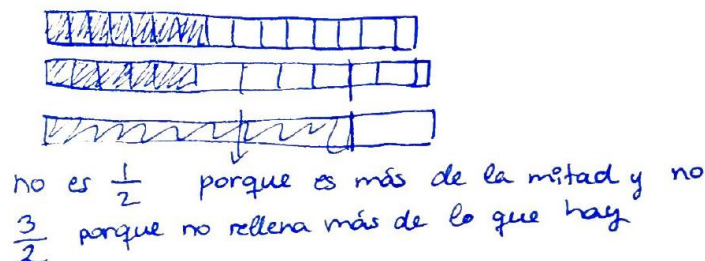 no es 1/2 porque es más de la mitad y no
3/2 porque no rellena más de lo que hay